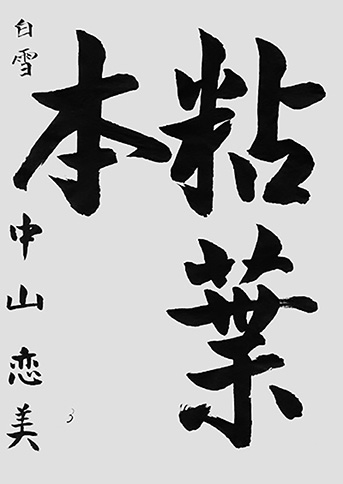 粘葉
本
白雪 中山恋美